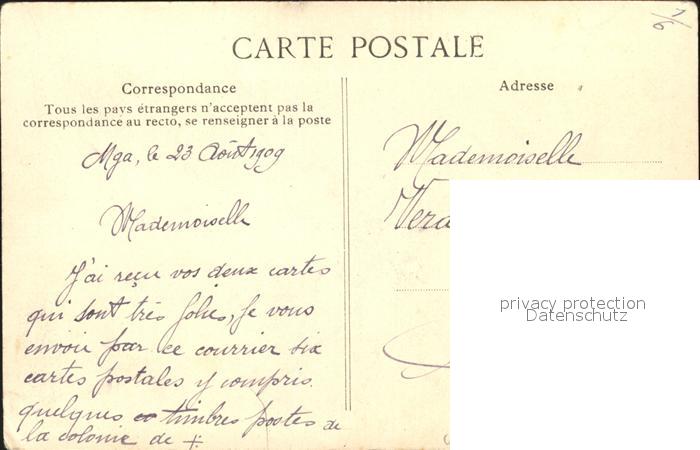 CARTE POSTALE
Correspondance
Tous les pays étrangers n'acceptent pas la
correspondance au recto, se renseigner à la poste
Mga, le 23 Août 1909
Mademoiselle
J'ai reçu vos deux cartes
qui sont très jolies, je vous
envoie par ce courrier six
cartes postales y compris
quelques timbres postes de
la colonie de +
Adresse
Mademoiselle
Vera
privacy protection
Datenschutz